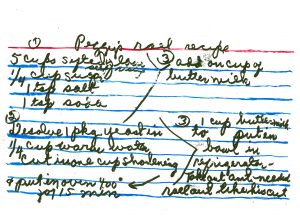 ① Peggy's roll recipe
5 cups self rising flour
1/4 cup sugar
1 tsp salt
1 tsp soda
③ add on cup of
buttermilk
②
Desolve 1 pkg yeast in
1/4 cup warm water
cut in one cup shortening
put in oven 400°
for 15 min
③ 1 cup buttermilk
to put in
bowl in
refrigerator
take out as needed
roll out like biscuit